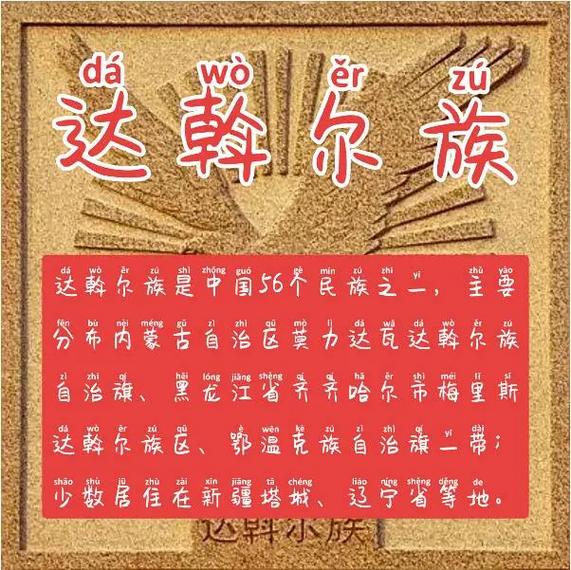 dá wò ěr zú
达斡尔族
dá wò ěr zú shì zhōng guó gè mín zú zhī yī zhǔ yào
达斡尔族是中国56个民族之一，主要
fēn bù nèi měng gǔ zì zhì qū mò lì dá wǎ dá wò ěr zú
分布内蒙古自治区莫力达瓦达斡尔族
zì zhì qí hēi lóng jiāng shěng qí qí hā ěr shì méi lǐ sī
自治旗、黑龙江省齐齐哈尔市梅里斯
dá wò ěr zú qū è wēn kè zú zì zhì qí yī dài
达斡尔族区、鄂温克族自治旗一带；
shǎo shù jū zhù zài xīn jiāng tǎ chéng liáo níng shěng děng de
少数居住在新疆塔城、辽宁省等地。
达斡尔族